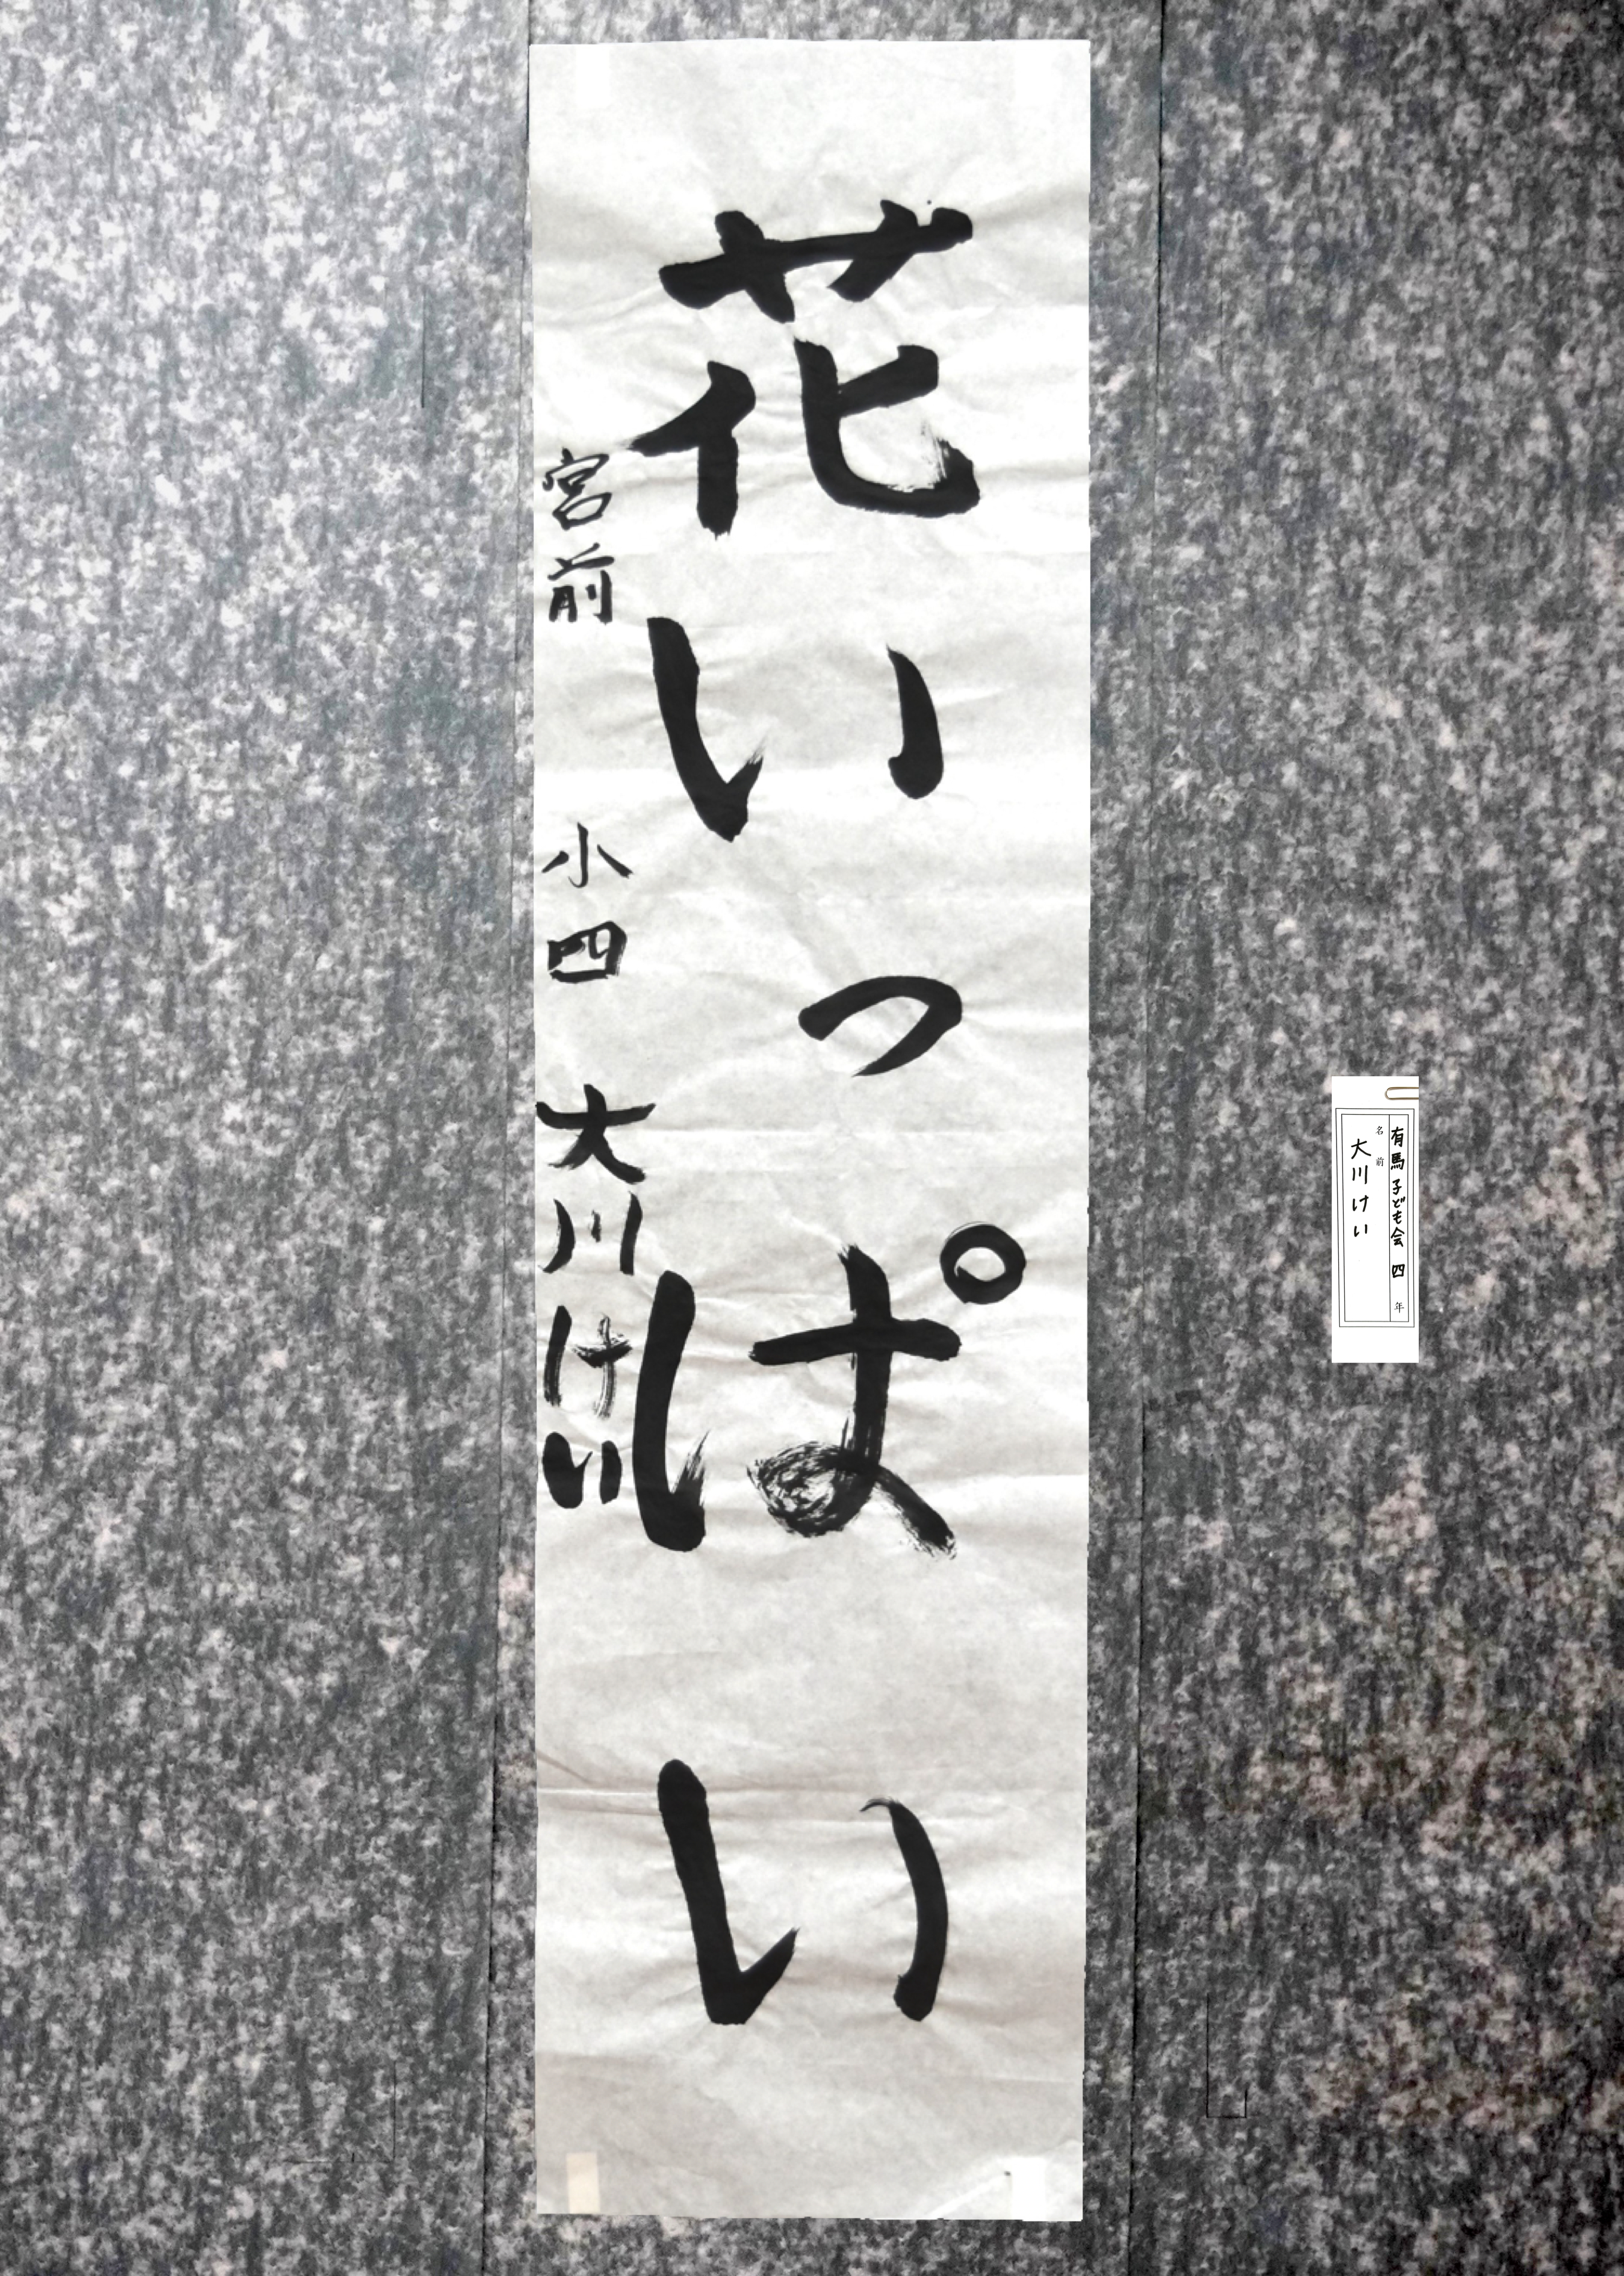 花いっぱい
宮前 小四 大川けい
有馬子ども会 四 年
名前
大川けい